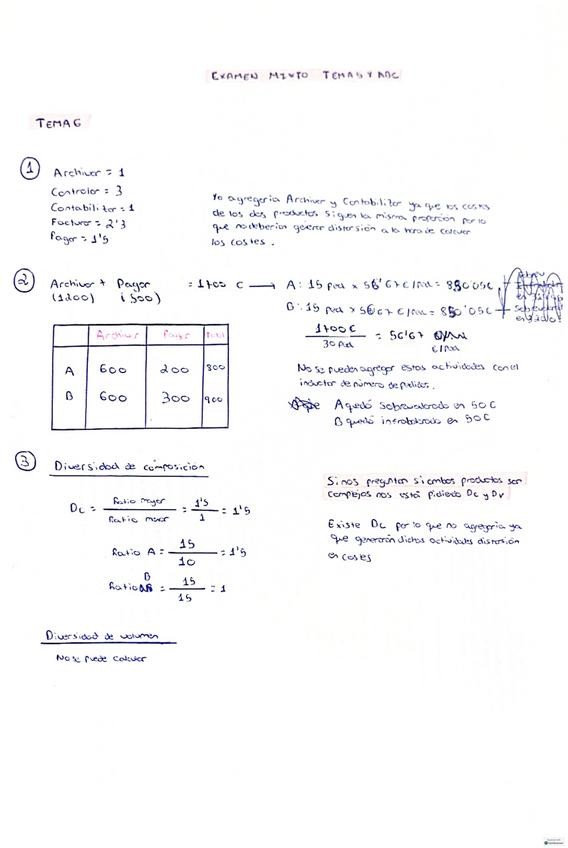 EXAMEN MIXTO TEMAS Y ABC
TEMA 6
1
Archivar = 1
Controlar = 3
Contabilizar = 1
Facturar = 2'3
Pagar = 1'5
Yo agregaria Archivar y Contabilizar ya que los costes
de los dos productos siguen la misma proporcion por lo
que no deberian generar distorsión a la hora de calcular
los costes.
2
Archivar + Pagar = 1700 € → A: 15 ped x 56'67 €/Ped = 850'05€
(1200) (500)
B: 15 ped x 56'67 €/Ped = 850'05€
1700€ / 30 Ped = 56'67 €/Ped
Archivar Pagar Total
A 600 200 800
B 600 300 900
No se pueden agregar estas actividades con el
inductor de número de pedidos.
A quedó sobrevalorado en 50€
B quedó infravalorado en 50€
3
Diversidad de composicion
Dc = Ratio mayor / Ratio menor = 1'5 / 1 = 1'5
Ratio A = 15 / 10 = 1'5
Ratio B = 15 / 15 = 1
Si nos preguntan si ambos productos son
complejos nos está pidiendo Dc y Dv
Existe Dc por lo que no agregaria ya
que generarán dichas actividades distorsión
en costes
Diversidad de volumen
No se puede calcular